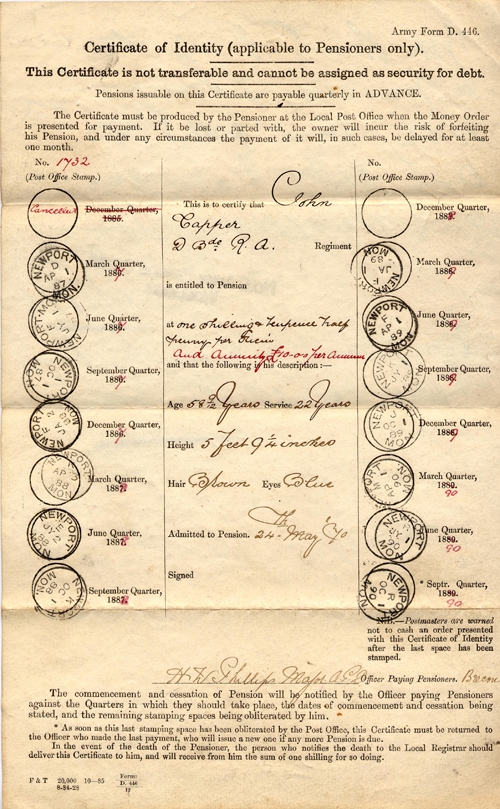 Army Form D. 446.
Certificate of Identity (applicable to Pensioners only).
This Certificate is not transferable and cannot be assigned as security for debt.
Pensions issuable on this Certificate are payable quarterly in ADVANCE.
The Certificate must be produced by the Pensioner at the Local Post Office when the Money Order
is presented for payment. If it be lost or parted with, the owner will incur the risk of forfeiting
his Pension, and under any circumstances the payment of it will, in such cases, be delayed for at least
one month.
No. 1732
(Post Office Stamp.)
Cancelled
December Quarter,
1885.
NEWPORT MON
D
AP 1
87
March Quarter,
1886.
NEWPORT-MON
June Quarter,
1886.
MON
OC 1
87
September Quarter,
1886.
NEWPORT
JA
88
December Quarter,
1886.
NEWPORT
AP
88
MON
March Quarter,
1887.
NEWPORT MON
JY
88
June Quarter,
1887.
NEWPORT MON
OC 1
88
September Quarter,
1887.
This is to certify that John
Capper
D Bde R. A. Regiment
is entitled to Pension
at one shilling & tenpence half
penny per diem
And Annuity £10-0-0 per Annum
and that the following is his description:—
Age 58 9/12 Years Service 22 Years
Height 5 feet 9 1/4 inches
Hair Brown Eyes Blue
Admitted to Pension. 24th May '70
Signed
No.
(Post Office Stamp.)
December Quarter,
NEWPORT MON
JA 1
89
March Quarter,
NEWPORT MON
F
AP 1
89
June Quarter,
September Quarter,
NEWPORT MON
OC
89
December Quarter,
NEWPORT MON
AP
90
March Quarter,
1889.
90
NEWPORT
JY
90
June Quarter,
1889.
90
NEWPORT MON
R
OC 1
90
* Septr. Quarter,
1889.
90
N.B.—Postmasters are warned
not to cash an order presented
with this Certificate of Identity
after the last space has been
stamped.
H W Phillips Major A.P.D. Officer Paying Pensioners. Brecon
The commencement and cessation of Pension will be notified by the Officer paying Pensioners
against the Quarters in which they should take place, the dates of commencement and cessation being
stated, and the remaining stamping spaces being obliterated by him.
* As soon as this last stamping space has been obliterated by the Post Office, this Certificate must be returned to
the Officer who made the last payment, who will issue a new one if any more Pension is due.
In the event of the death of the Pensioner, the person who notifies the death to the Local Registrar should
deliver this Certificate to him, and will receive from him the sum of one shilling for so doing.
F & T 20,000 10—85
8-84-28
Forms
D. 446
12